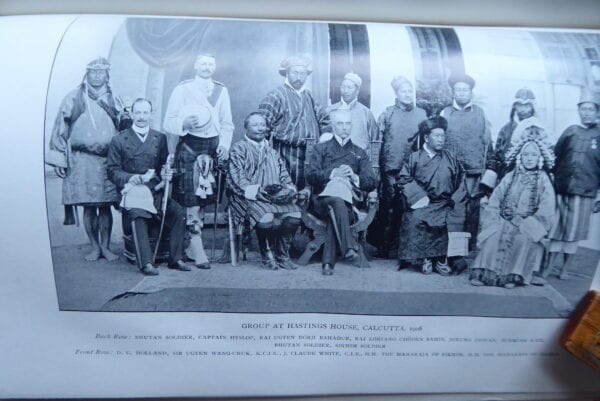 GROUP AT HASTINGS HOUSE, CALCUTTA, 1906
Back Row: BHUTAN SOLDIER, CAPTAIN HYSLOP, RAI UGYEN DORJI BAHADUR, RAI LOBZANG CHÖDEN SAHIB, JERUNG DEWAN,
BHUTAN SOLDIER, SIKHIM SOLDIER
Front Row: D. E. HOLLAND, SIR UGYEN WANG-CHUK, K.C.I.E., J. CLAUDE WHITE, C.I.E., H.H. THE MAHARAJA OF SIKHIM, H.H. THE MAHARANI OF